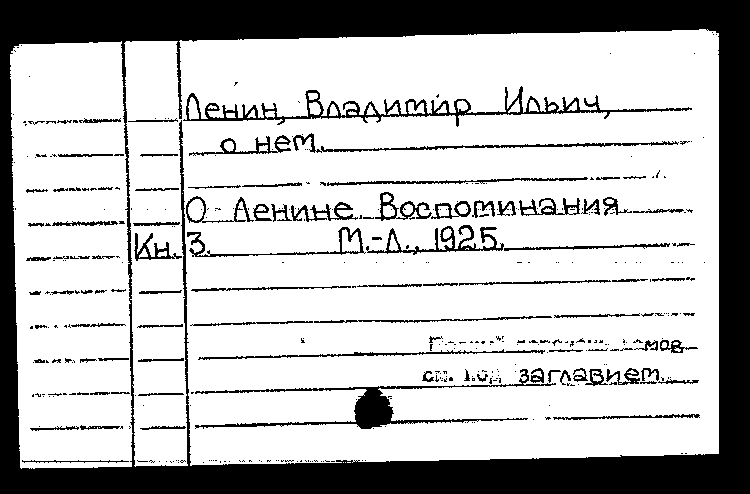 Ленин, Владимир Ильич,
о нем.
О Ленине. Воспоминания.
Кн. 3. М.-Л., 1925.
Полный перечень томов
см. под заглавием.